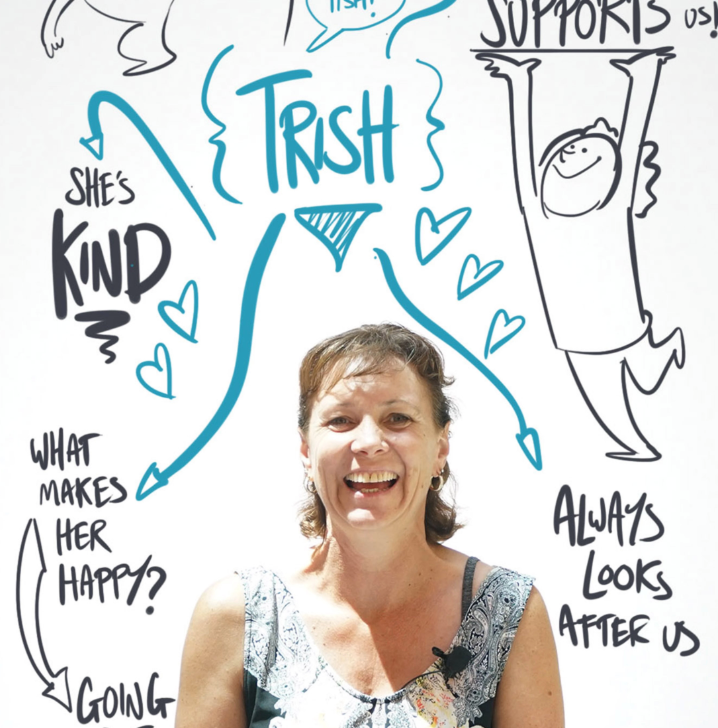 SUPPORTS US!
TRISH
SHE'S
KIND
WHAT
MAKES
HER
HAPPY?
GOING
ALWAYS
LOOKS
AFTER US